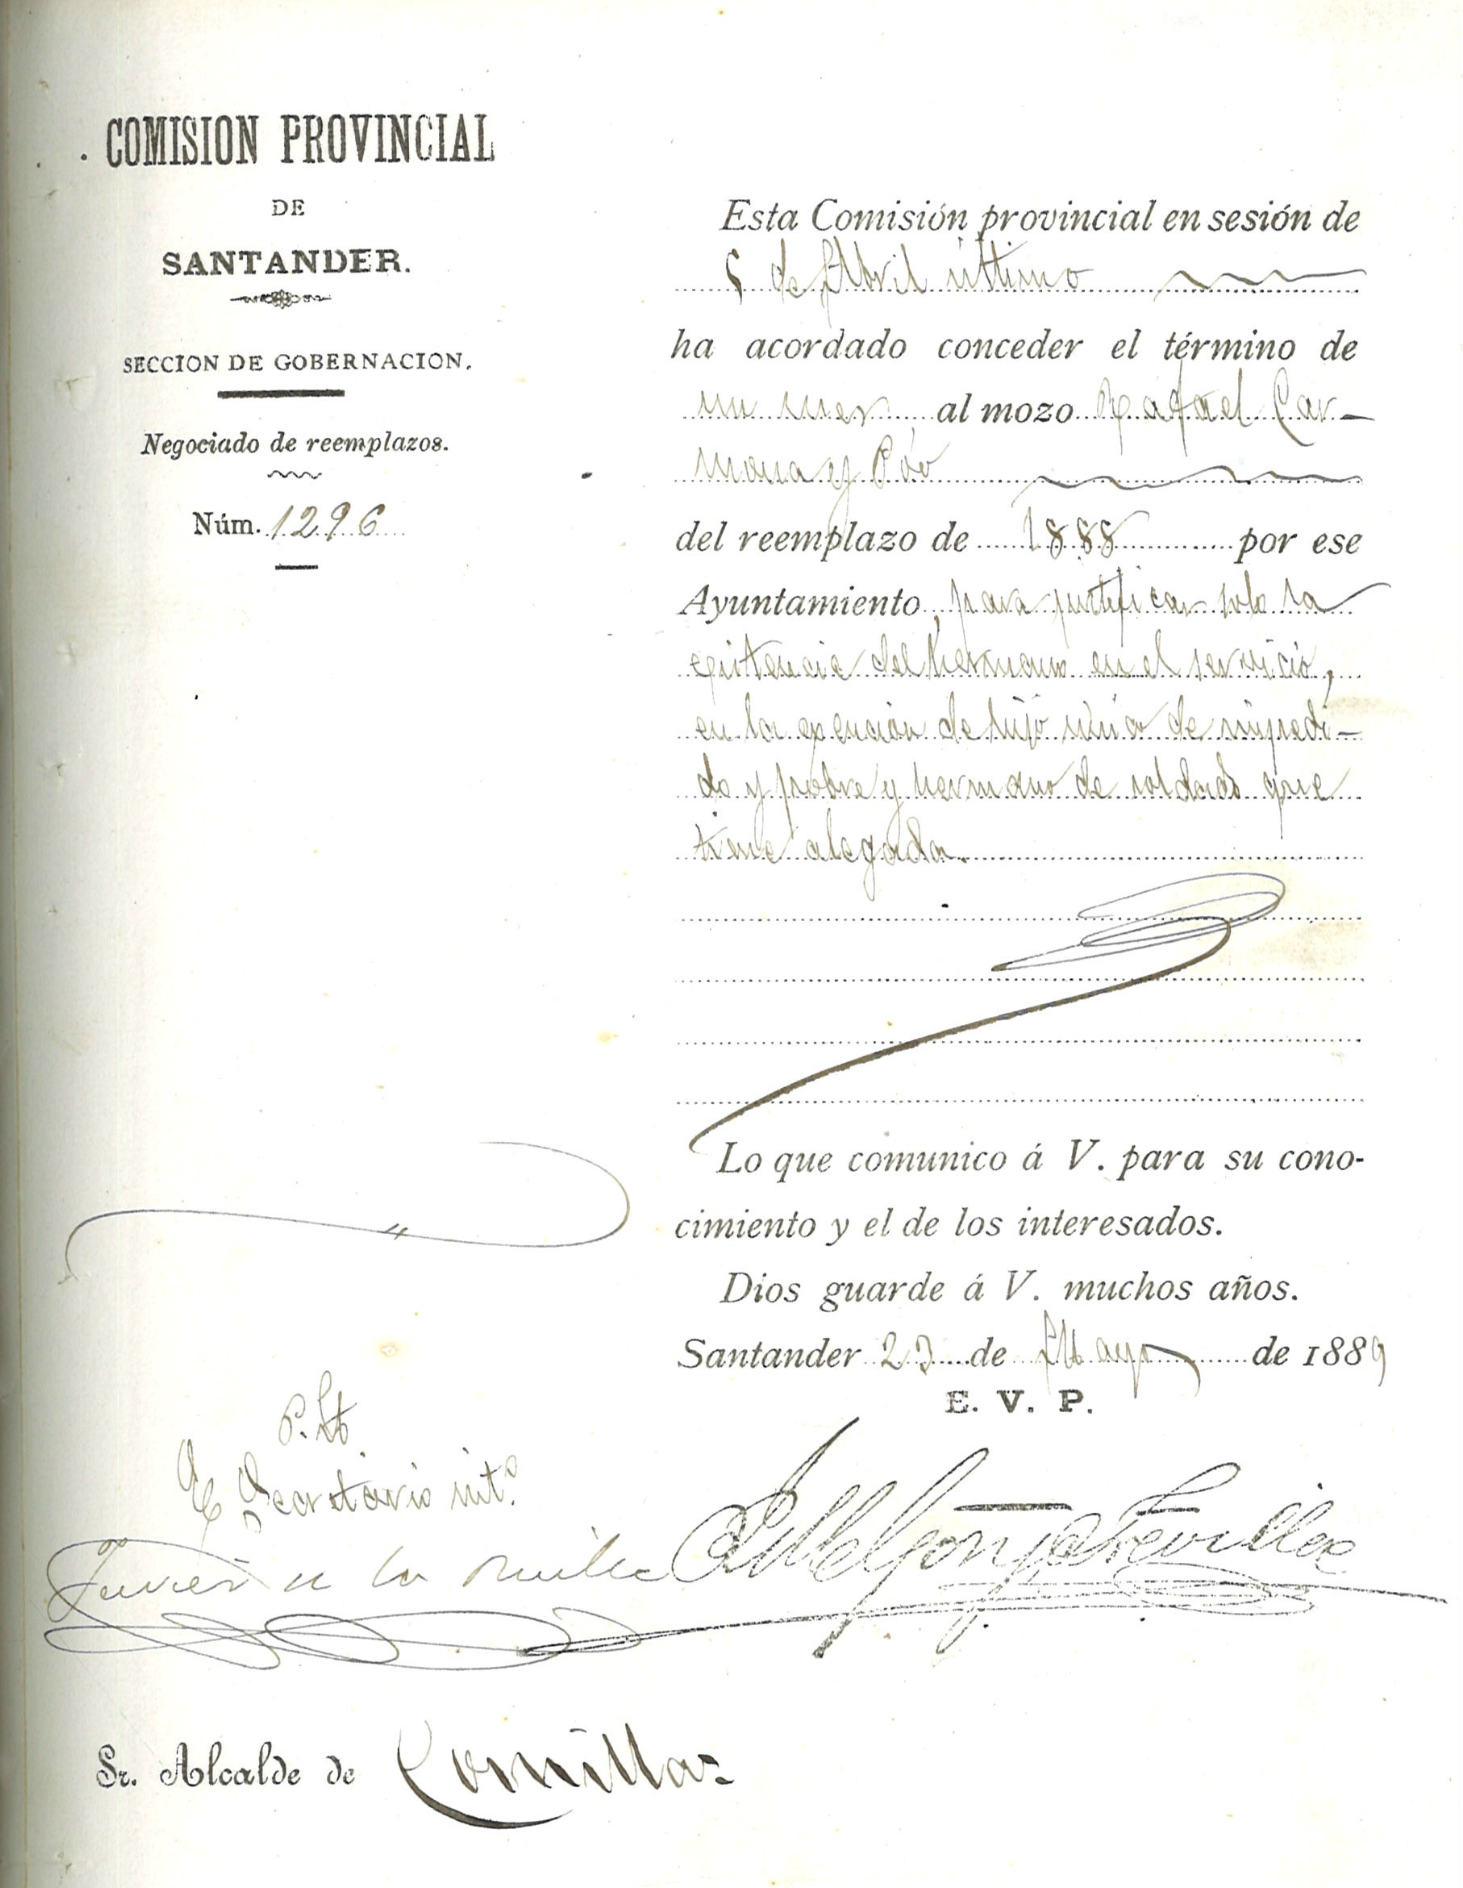 COMISION PROVINCIAL
DE
SANTANDER.
SECCION DE GOBERNACION.
Negociado de reemplazos.
Núm. 1296
Esta Comisión provincial en sesión de
de Abril último
ha acordado conceder el término de
un mes al mozo Rafael Car-
mona y Póo
del reemplazo de 1888 por ese
Ayuntamiento, para justificar solo la
existencia del hermano en el servicio,
en la exención de hijo único de impedi-
do y pobre y hermano de soldado que
tiene alegada.
Lo que comunico á V. para su cono-
cimiento y el de los interesados.
Dios guarde á V. muchos años.
Santander 23 de Mayo de 1889
E. V. P.
El Secretario int.º
Sr. Alcalde de Comillas